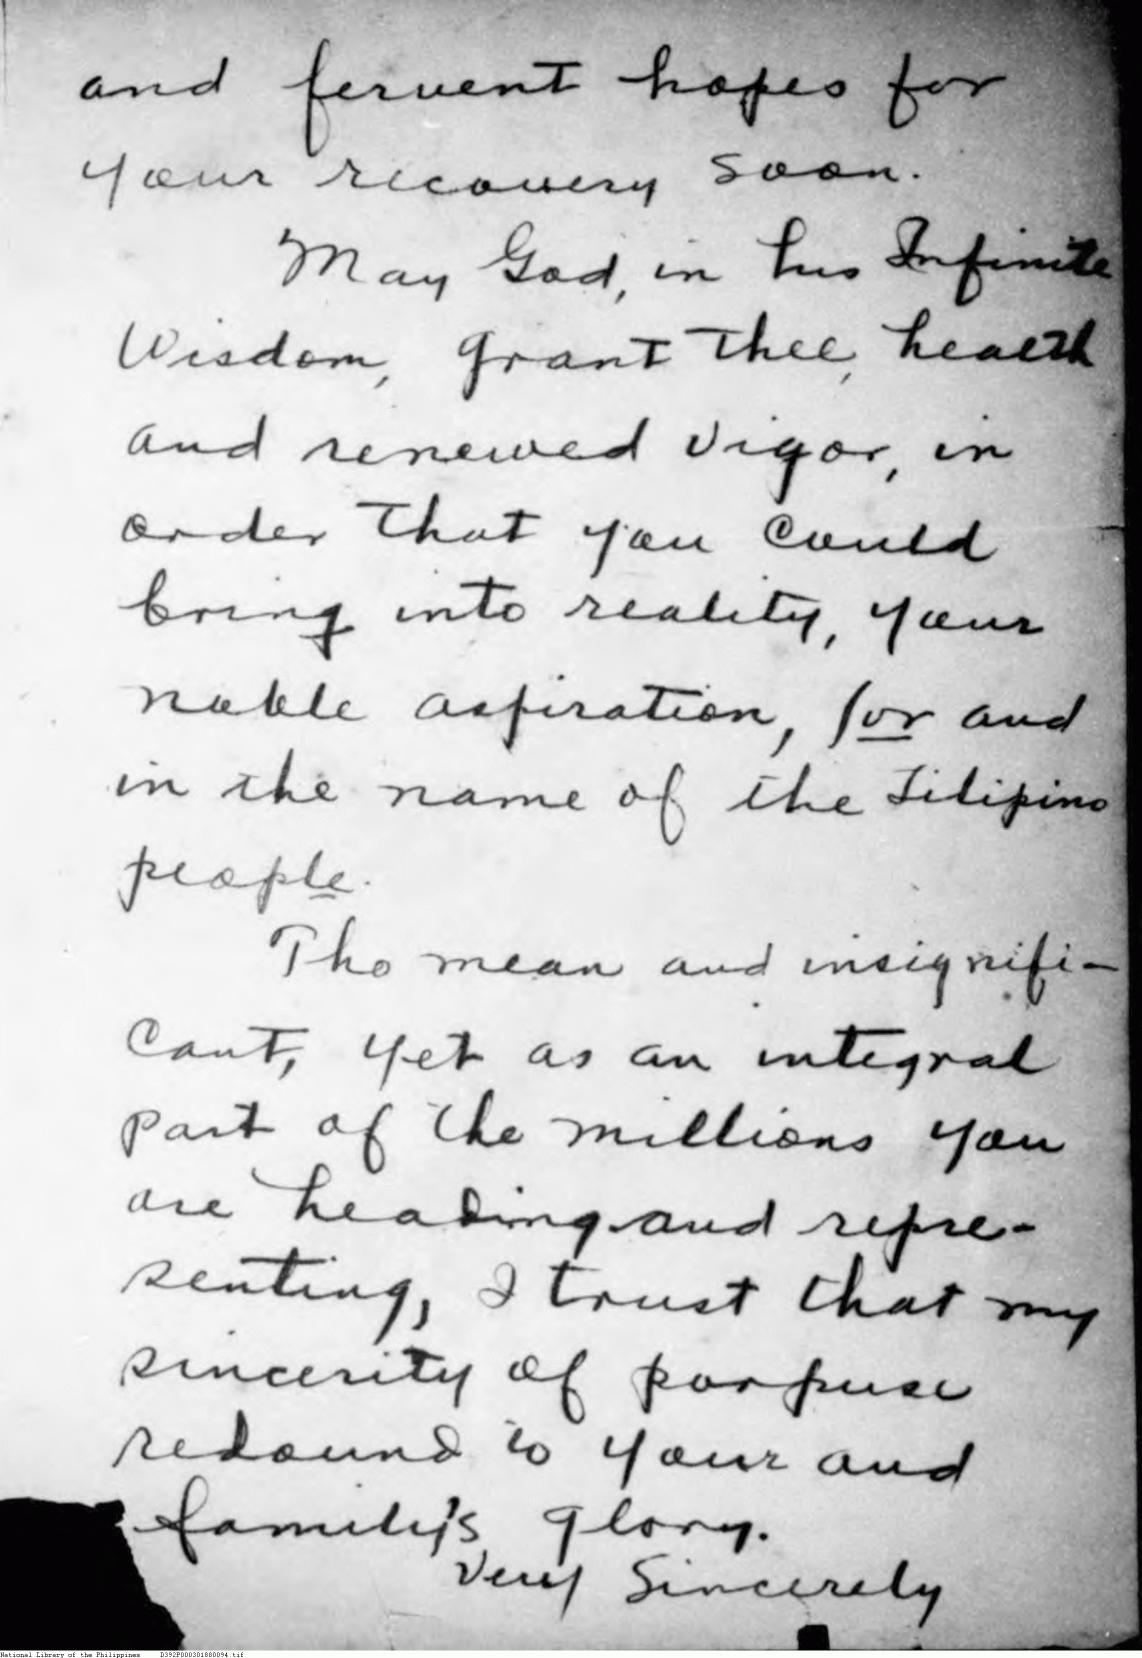 and fervent hopes for
your recovery soon.
May God, in his Infinite
Wisdom, grant thee, health
and renewed vigor, in
order that you could
bring into reality, your
noble aspiration, for and
in the name of the Filipino
people.
Tho mean and insignifi-
cant, yet as an integral
part of the millions you
are heading and repre-
senting, I trust that my
sincerity of porpuse
redound to your and
family's glory.
Very Sincerely
National Library of the Philippines D392P000301880094.tif